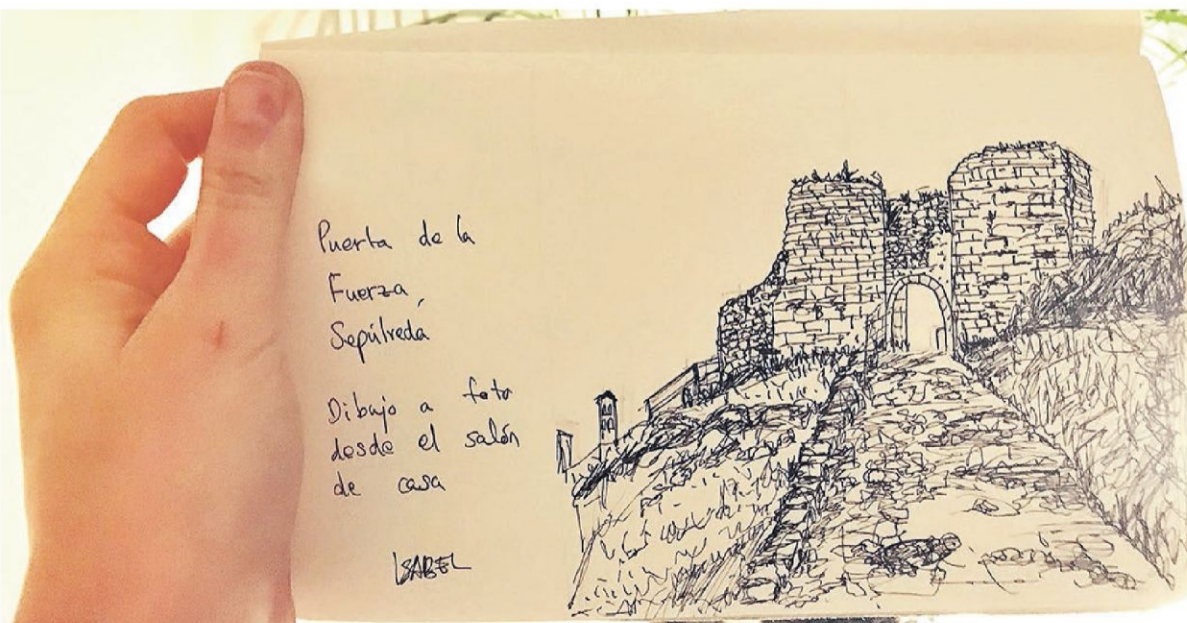 Puerta de la
Fuerza,
Sepúlveda
Dibujo a foto
desde el salón
de casa
ISABEL